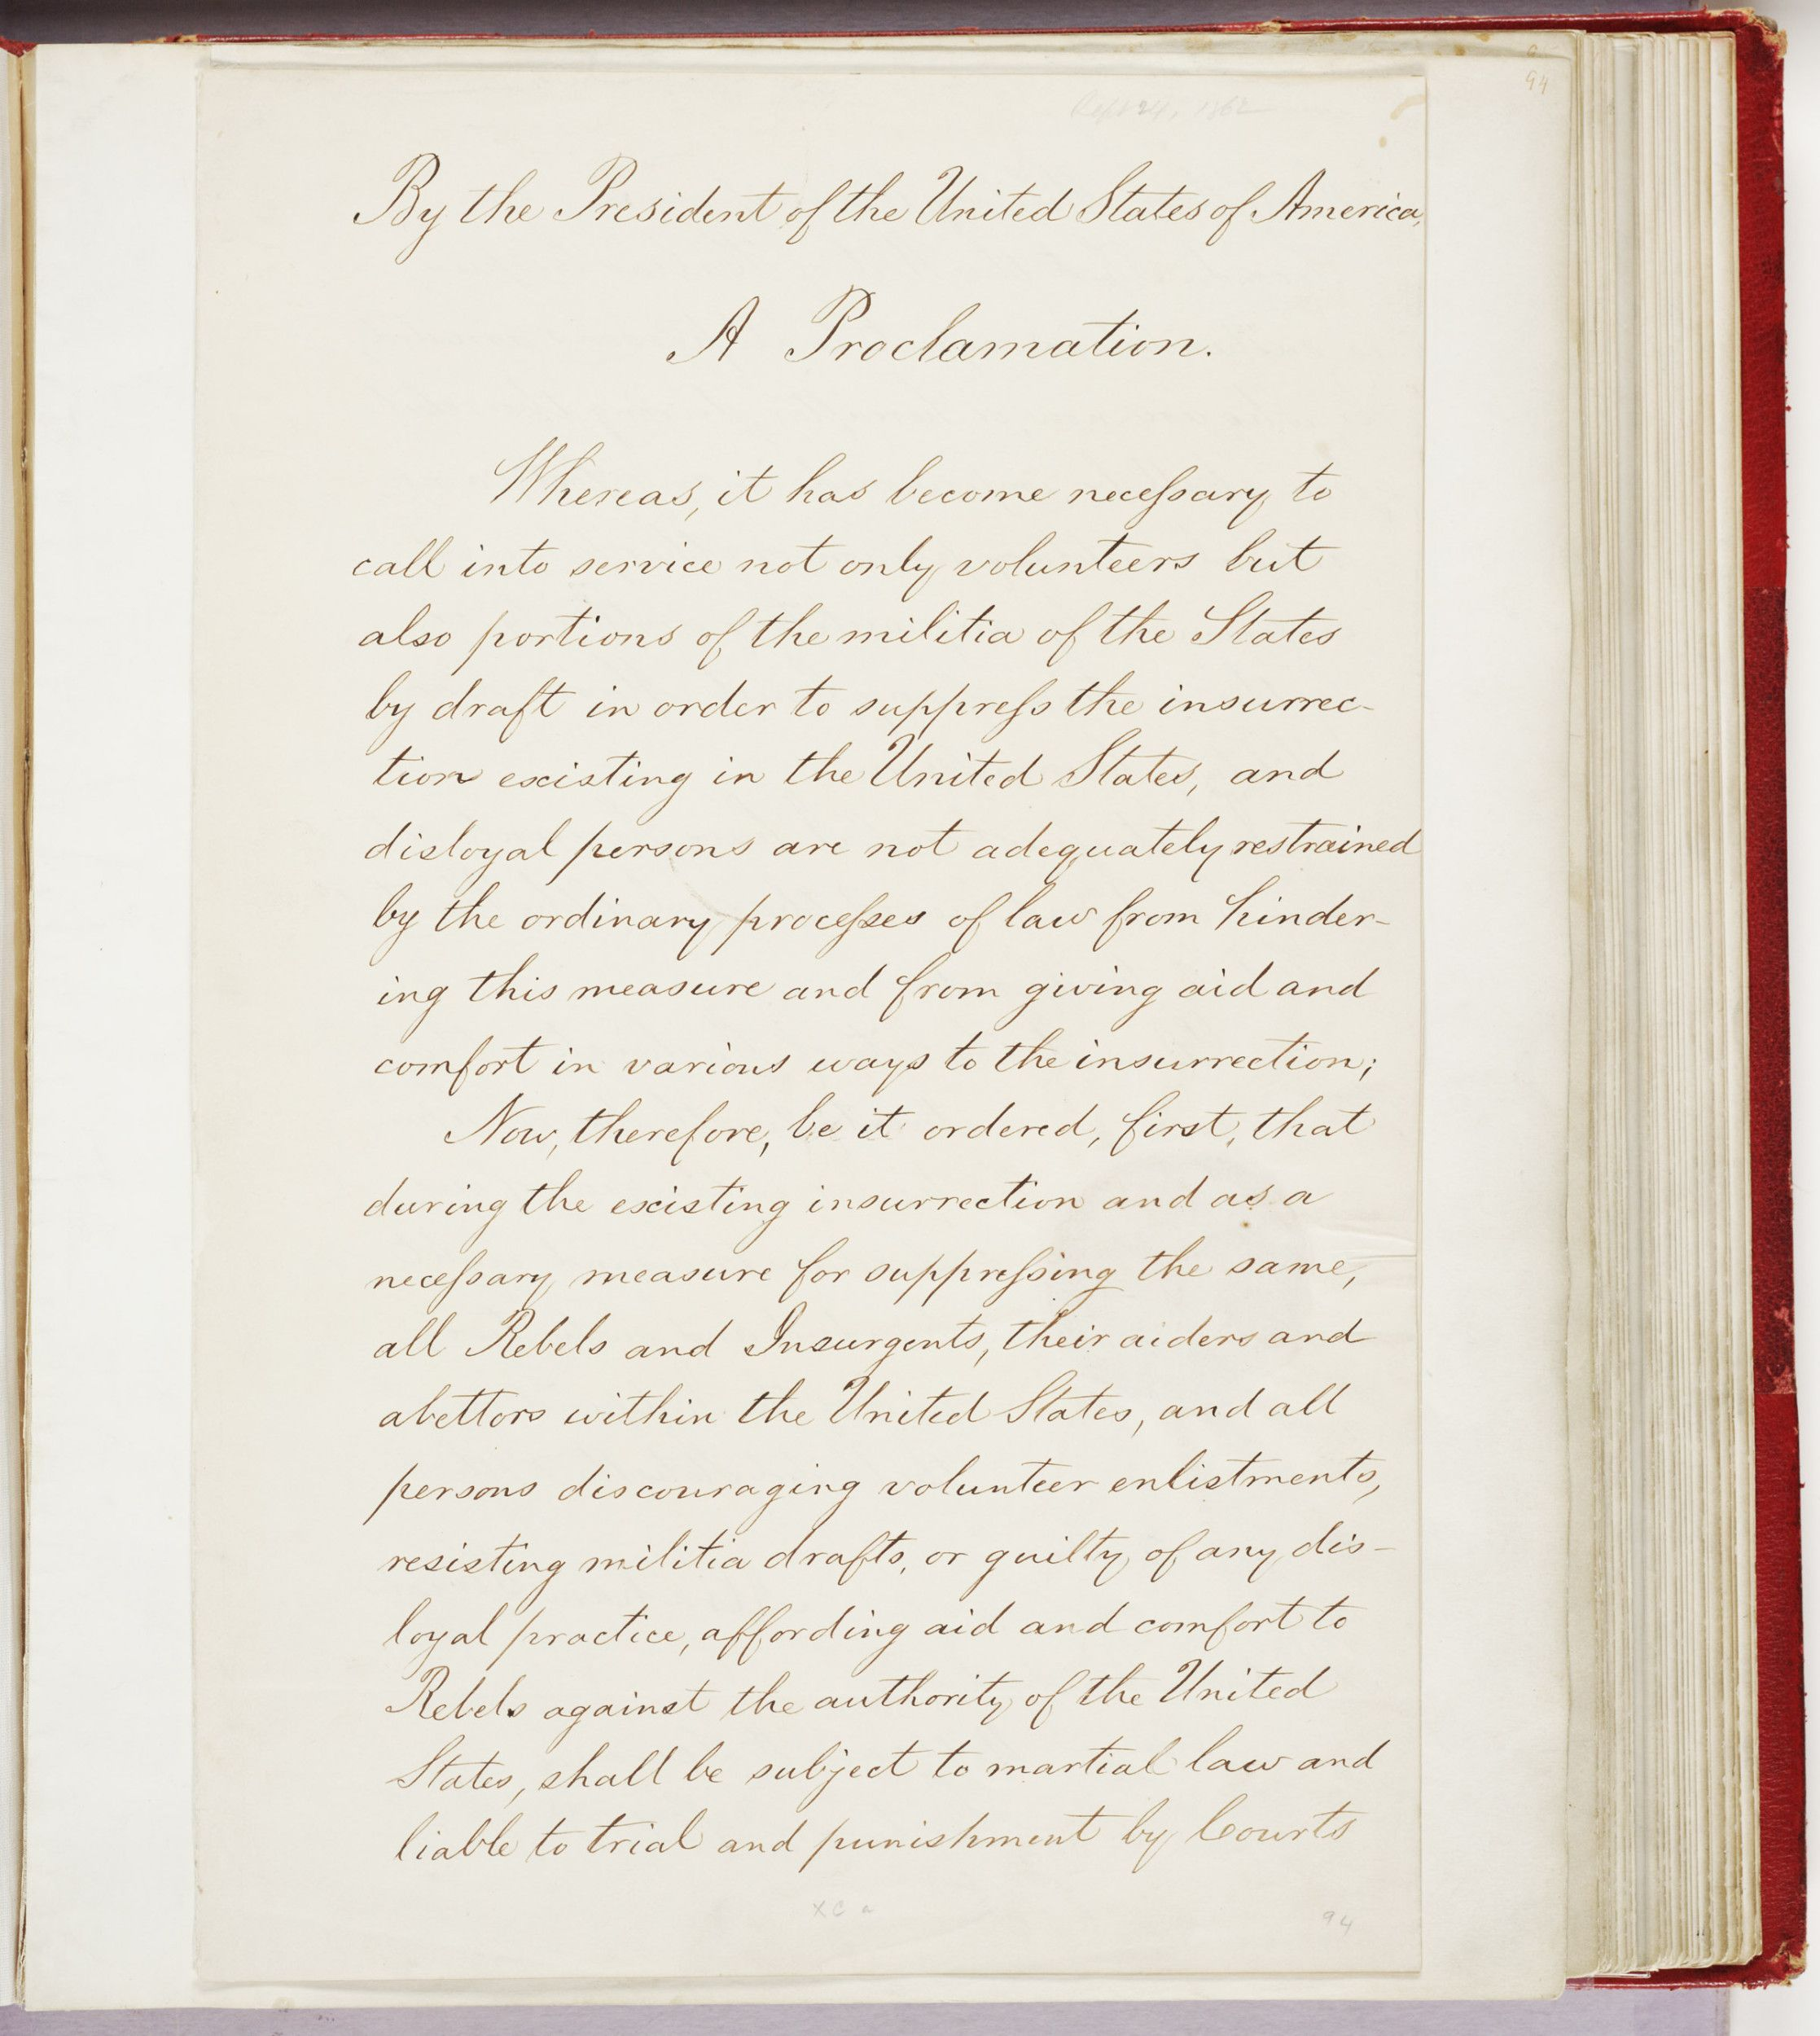 94
Sept 24, 1862
By the President of the United States of America,
A Proclamation.
Whereas, it has become necessary to
call into service not only volunteers but
also portions of the militia of the States
by draft in order to suppress the insurrec-
tion existing in the United States, and
disloyal persons are not adequately restrained
by the ordinary processes of law from hinder-
ing this measure and from giving aid and
comfort in various ways to the insurrection;
Now, therefore, be it ordered, first, that
during the existing insurrection and as a
necessary measure for suppressing the same,
all Rebels and Insurgents, their aiders and
abettors within the United States, and all
persons discouraging volunteer enlistments,
resisting militia drafts, or guilty of any dis-
loyal practice, affording aid and comfort to
Rebels against the authority of the United
States, shall be subject to martial law and
liable to trial and punishment by Courts
94